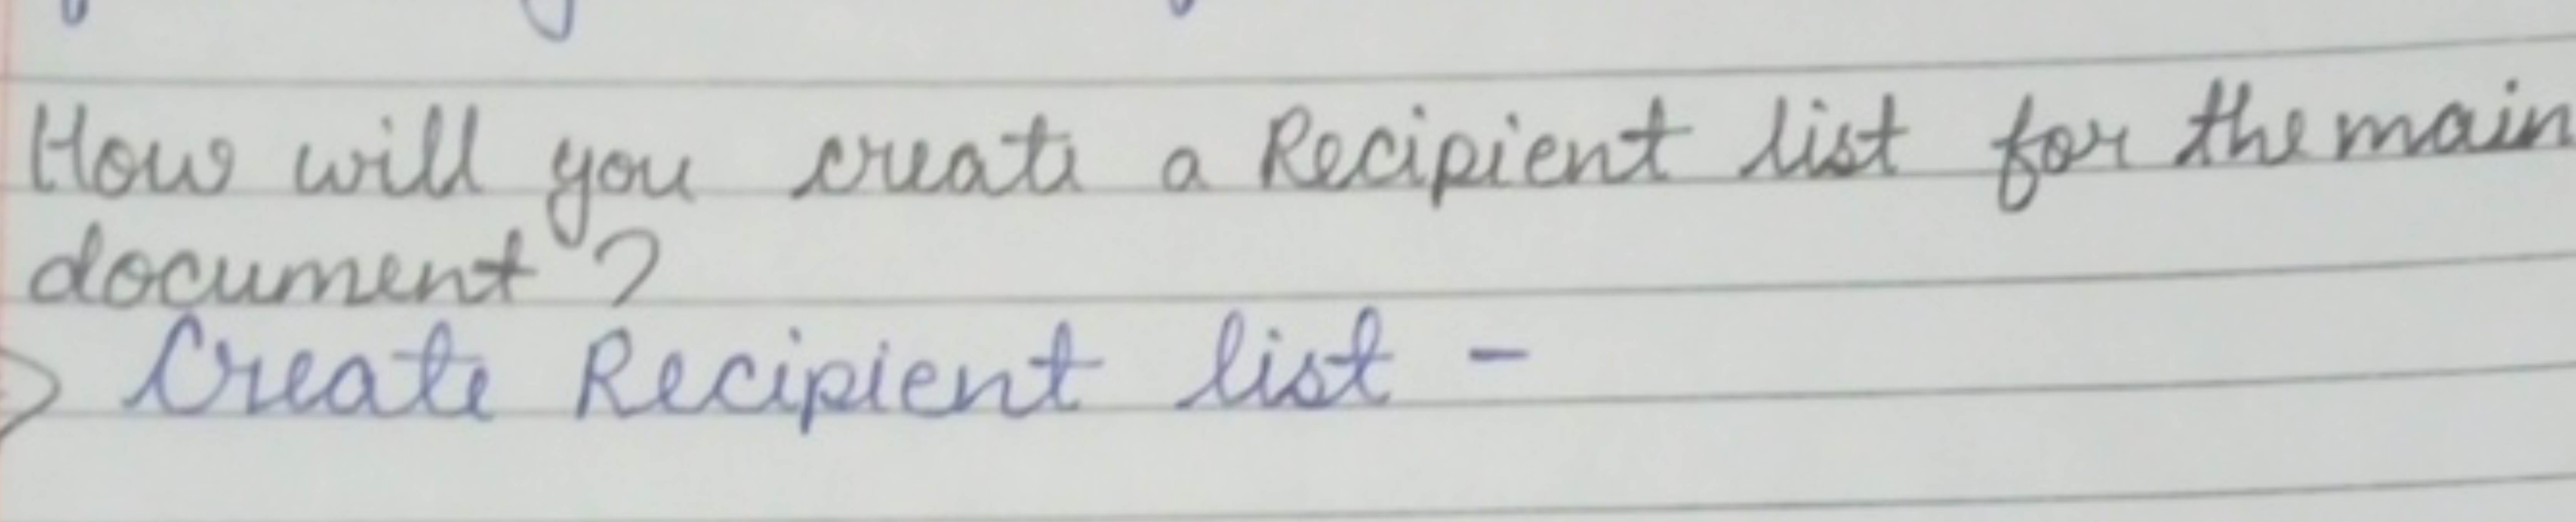 How will you create a Recipient list for the main
document?
Create Recipient list -